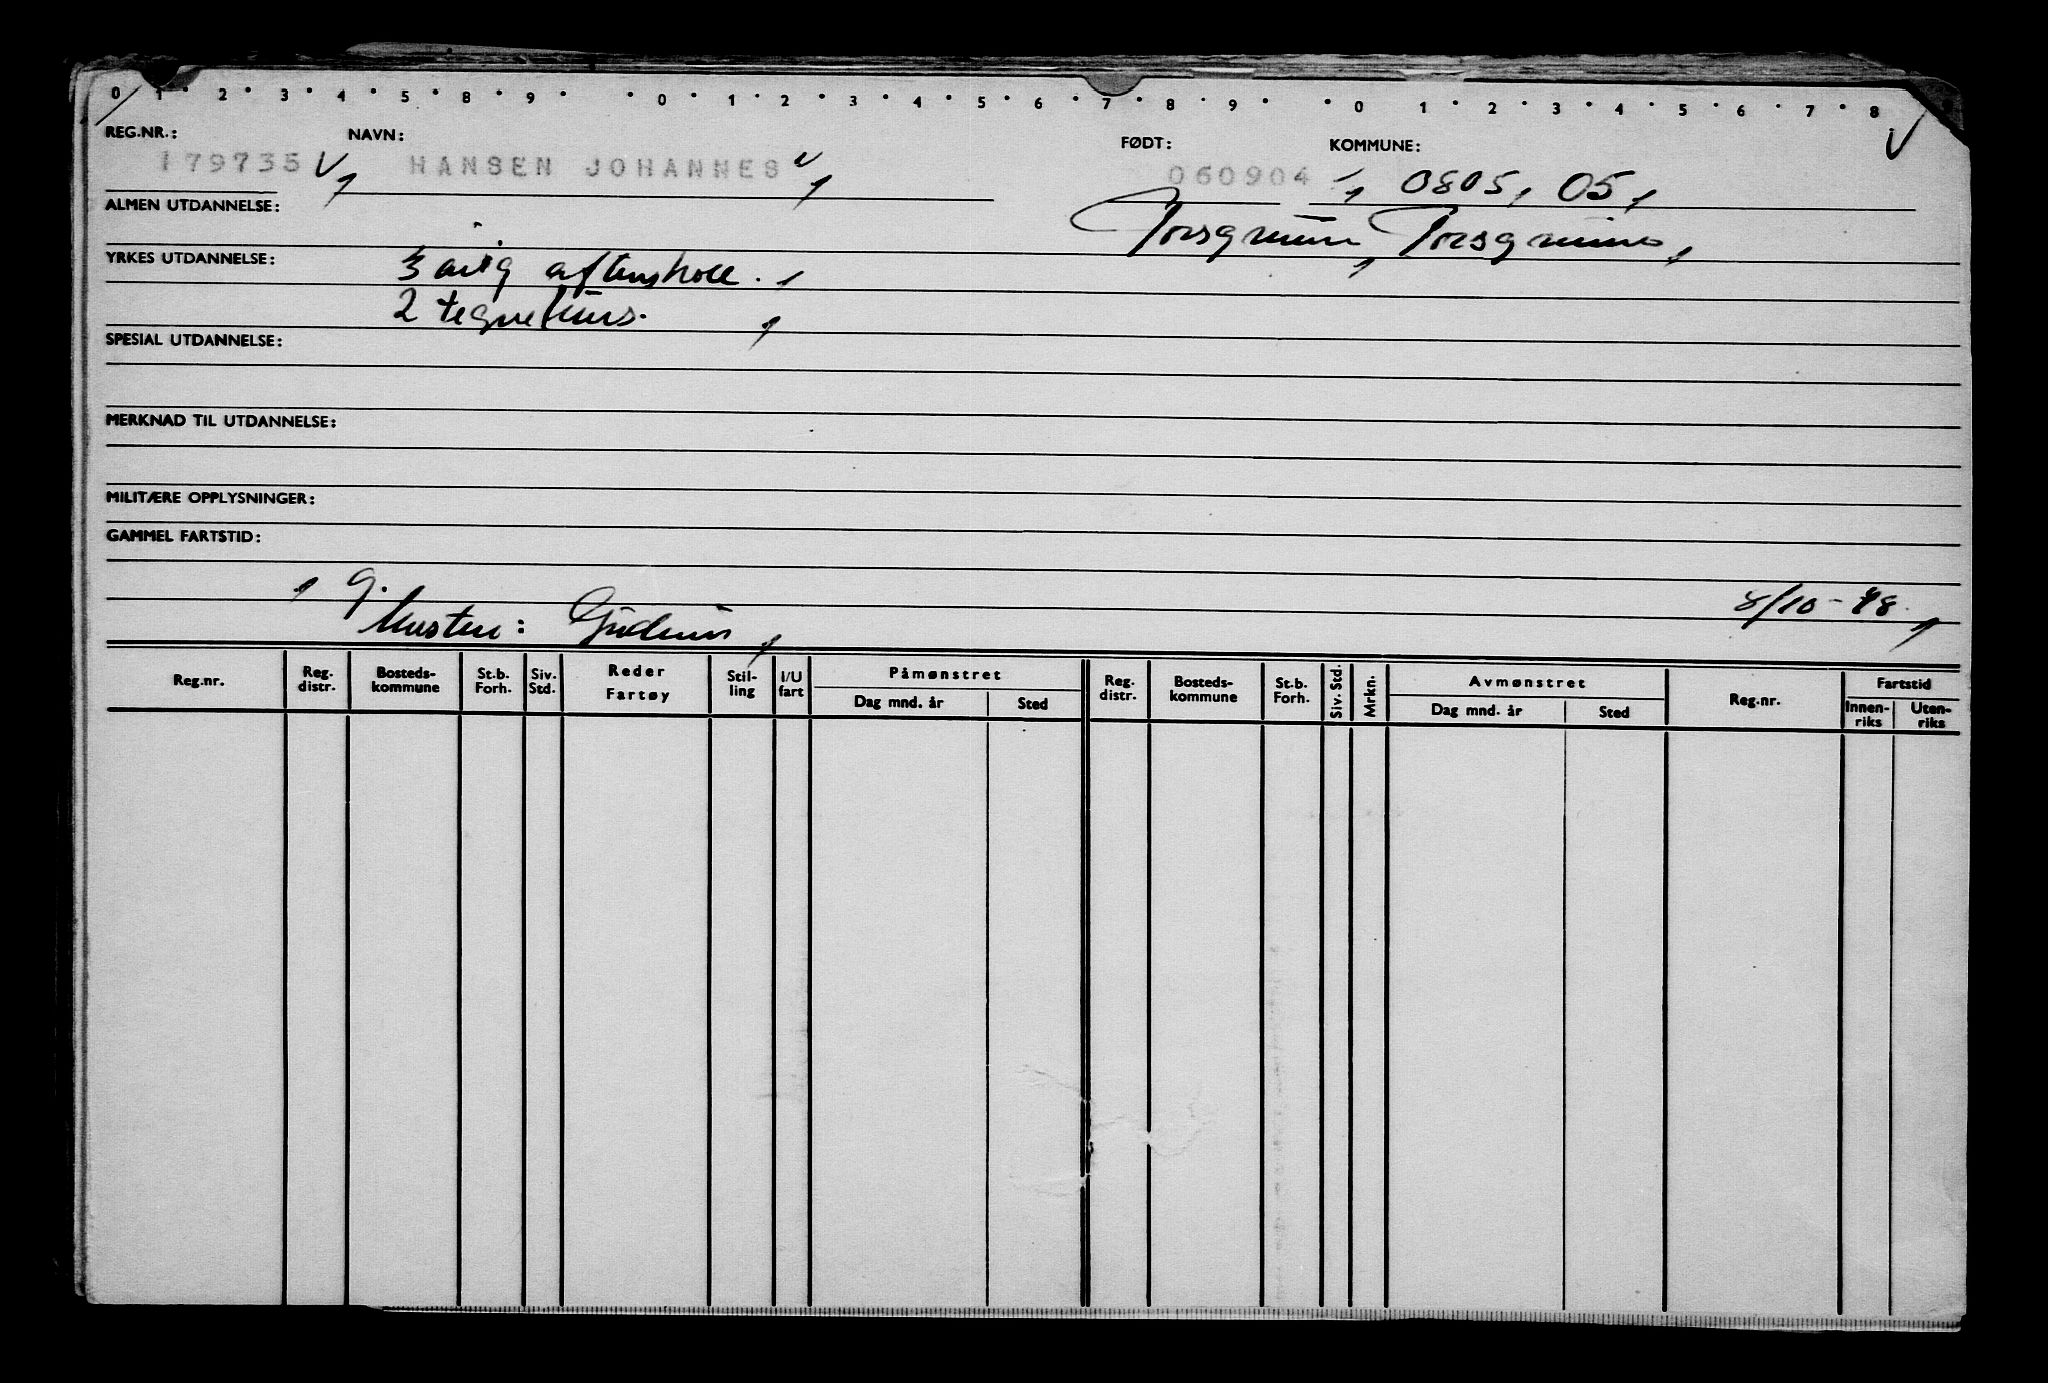 0 1 2 3 4 5 8 9 0 1 2 3 4 5 6 7 8 9 0 1 2 3 4 5 6 7 8
REG.NR.: NAVN: FØDT: KOMMUNE:
179735 HANSEN JOHANNES 060904 0805, 05,
ALMEN UTDANNELSE: Porsgrunn, Porsgrunn,
YRKES UTDANNELSE: 3 årig aftenskole.
2 tegnekurs.
SPESIAL UTDANNELSE:
MERKNAD TIL UTDANNELSE:
MILITÆRE OPPLYSNINGER:
GAMMEL FARTSTID:
g. 8/10-48.
Hustru: Gudrun,
Reg.nr. Reg. distr. Bosteds-kommune St.b. Forh. Siv. Std. Reder Fartøy Stil-ling I/U fart Påmønstret Dag mnd. år Sted Reg. distr. Bosteds-kommune St.b. Forh. Siv. Std. Mrkn. Avmønstret Dag mnd. år Sted Reg.nr. Fartstid Innen-riks Uten-riks